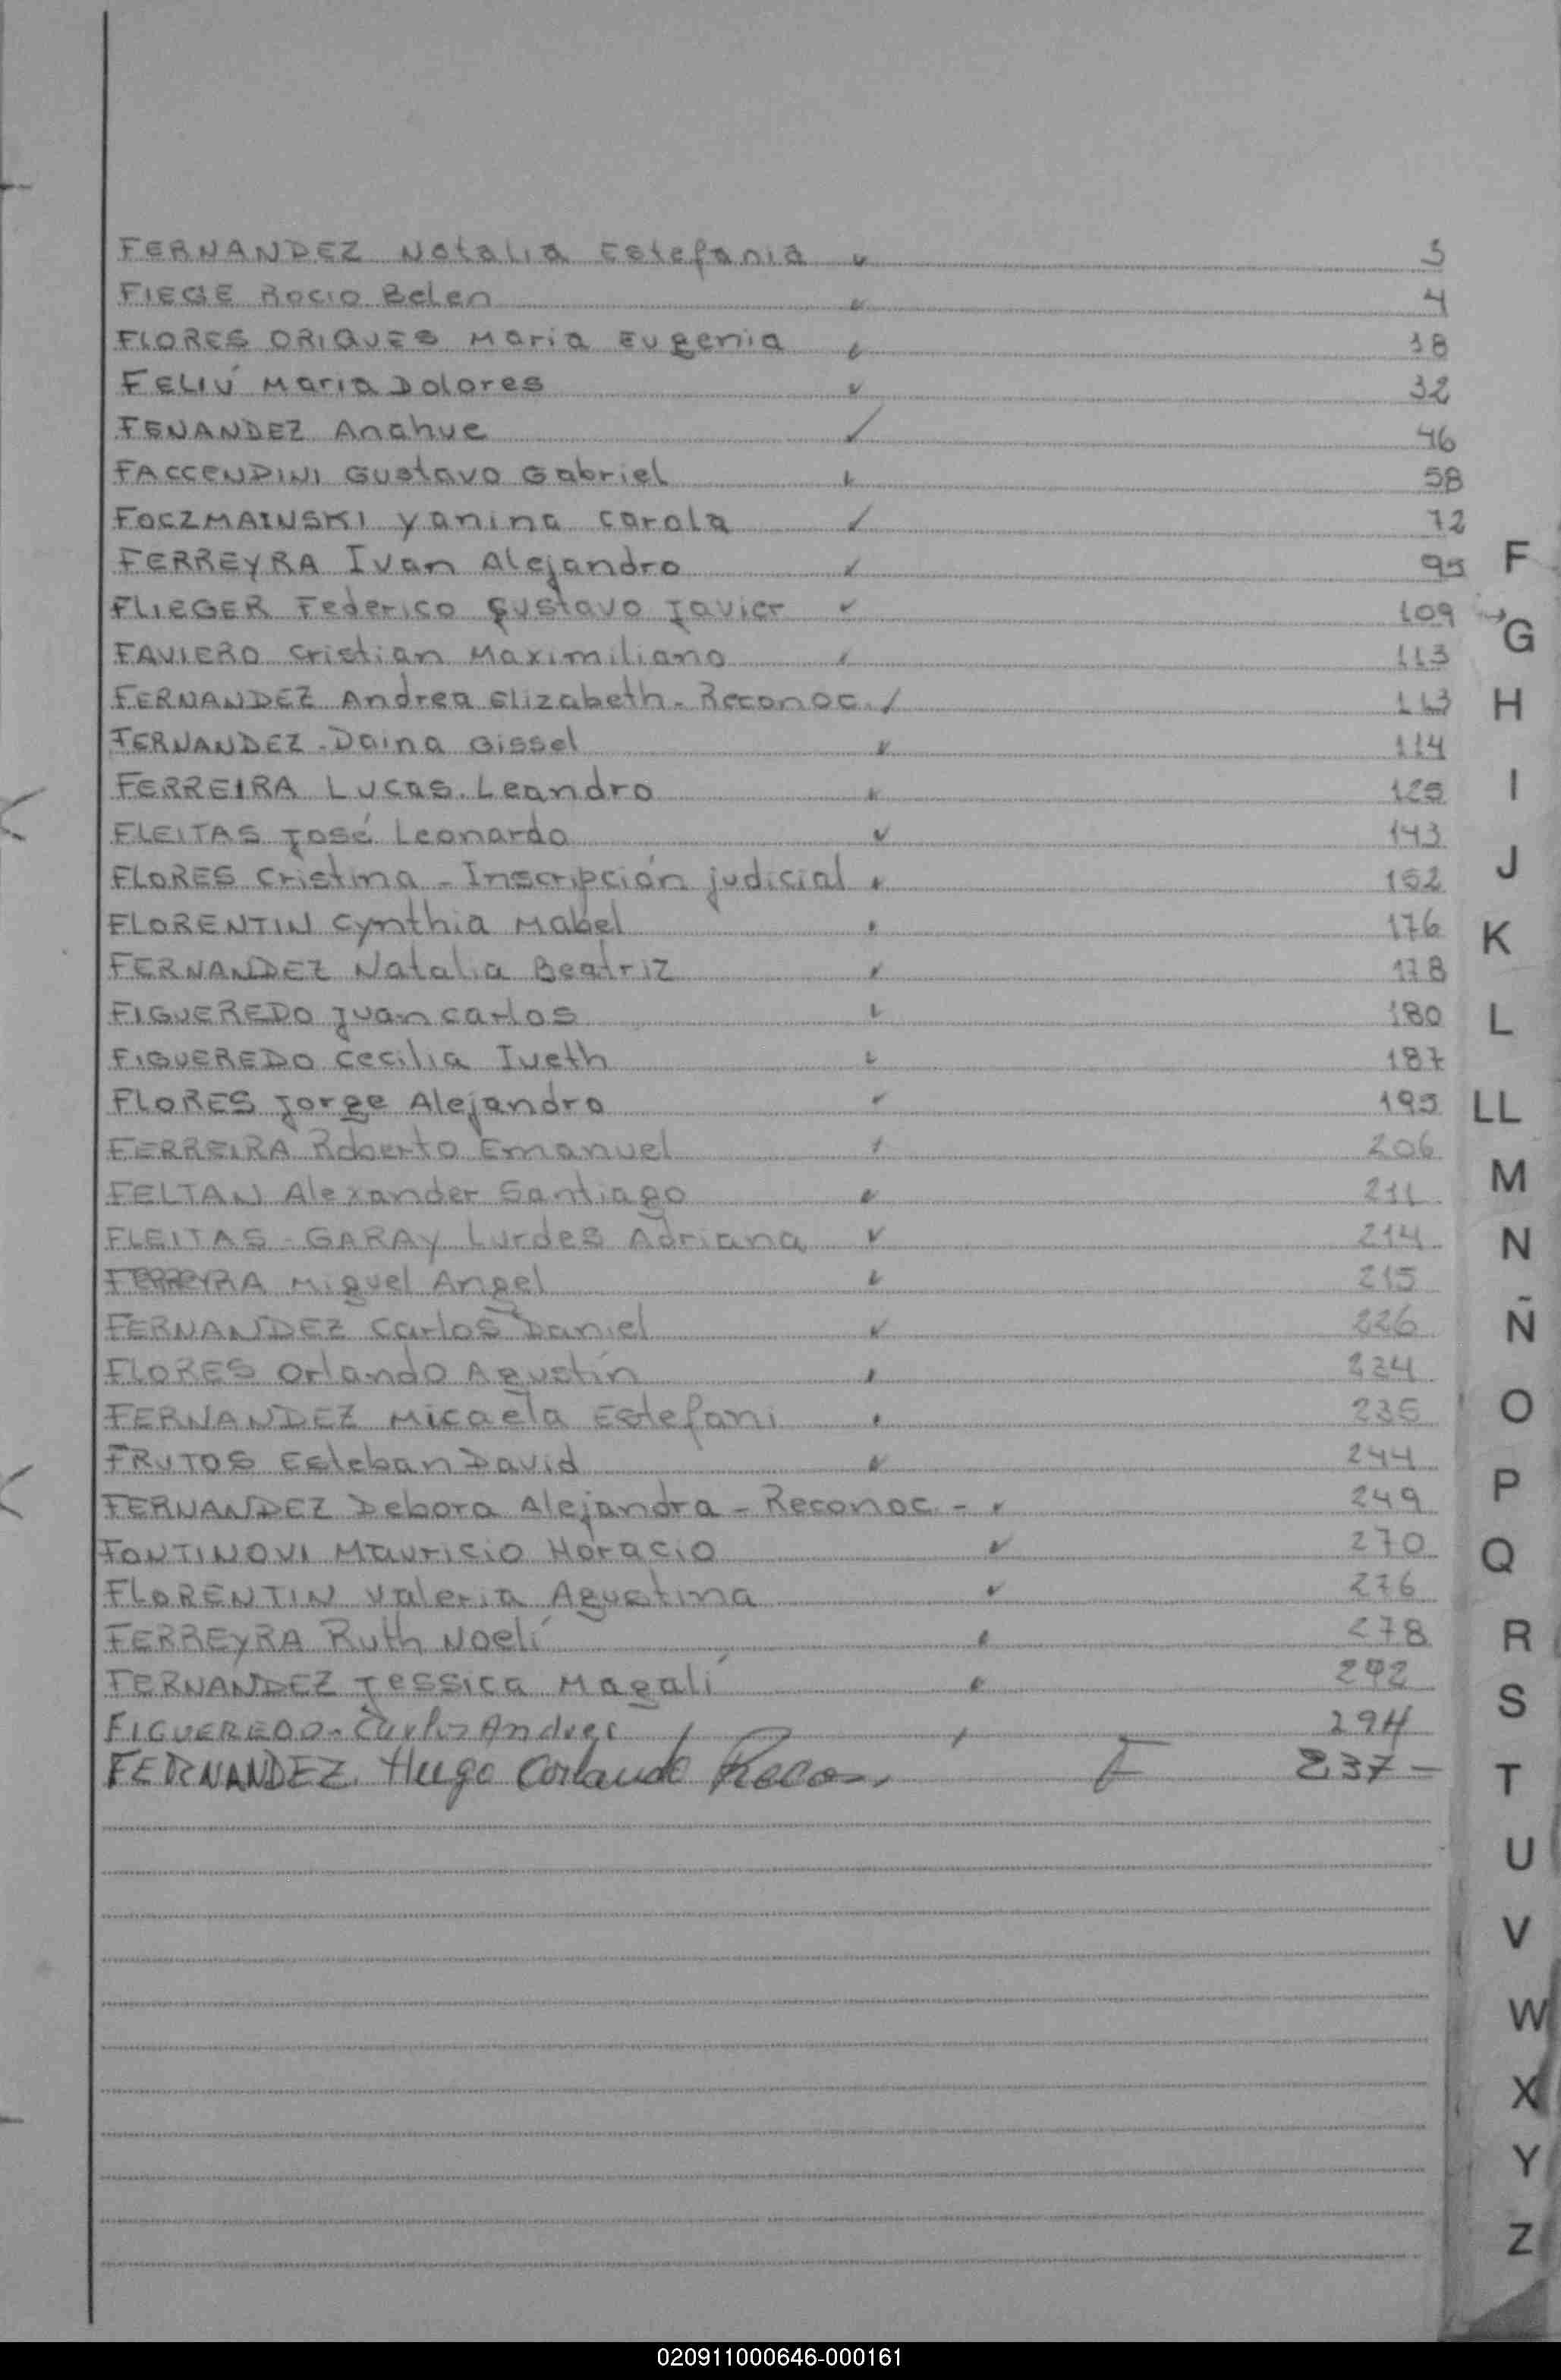 FERNANDEZ Natalia Estefania ✓ 3
FIEGE Rocio Belen ✓ 4
FLORES ORIQUES Maria Eugenia ✓ 18
FELIÚ Maria Dolores ✓ 32
FENANDEZ Anahue ✓ 46
FACCENDINI Gustavo Gabriel ✓ 58
FOCZMAINSKI Yanina Carola ✓ 72
FERREYRA Ivan Alejandro ✓ 95
FLIEGER Federico Gustavo Javier ✓ 109
FAVIERO Cristian Maximiliano ✓ 113
FERNANDEZ Andrea Elizabeth - Reconoc. ✓ 113
FERNANDEZ - Daina Gissel ✓ 114
FERREIRA Lucas Leandro ✓ 125
FLEITAS José Leonardo ✓ 143
FLORES Cristina - Inscripción judicial ✓ 152
FLORENTIN Cynthia Mabel ✓ 176
FERNANDEZ Natalia Beatriz ✓ 178
FIGUEREDO Juan Carlos ✓ 180
FIGUEREDO Cecilia Iveth ✓ 187
FLORES Jorge Alejandro ✓ 195
FERREIRA Roberto Emanuel ✓ 206
FELTAN Alexander Santiago ✓ 211
FLEITAS - GARAY Lurdes Adriana ✓ 214
FERREYRA Miguel Angel ✓ 215
FERNANDEZ Carlos Daniel ✓ 226
FLORES Orlando Agustín ✓ 234
FERNANDEZ Micaela Estefani ✓ 235
FRUTOS Esteban David ✓ 244
FERNANDEZ Debora Alejandra - Reconoc. - ✓ 249
FONTINOVI Mauricio Horacio ✓ 270
FLORENTIN Valeria Agustina ✓ 276
FERREYRA Ruth Noelí ✓ 278
FERNANDEZ Jessica Magalí ✓ 292
FIGUEREDO - Carlos Andres ✓ 294
FERNANDEZ Hugo Recon. F 237 -
F
G
H
I
J
K
L
LL
M
N
Ñ
O
P
Q
R
S
T
U
V
W
X
Y
Z
020911000646-000161